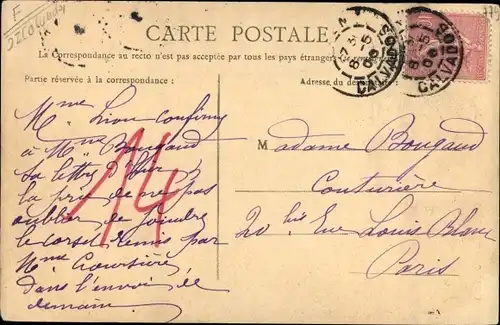 F
CARTE POSTALE
La Correspondance au recto n'est pas acceptée par tous les pays étrangers
Partie réservée à la correspondance :
Adresse du
CALVADOS
CALVADOS
14
Mme Lion confirme
à Mme Bougaud
sa lettre d'hier
la prie de ne pas
oublier de joindre
le corset remis par
Mme
dans l'envoi de
demain.
M adame Bougaud
Couturière
20 bis Rue Louis Blanc
Paris